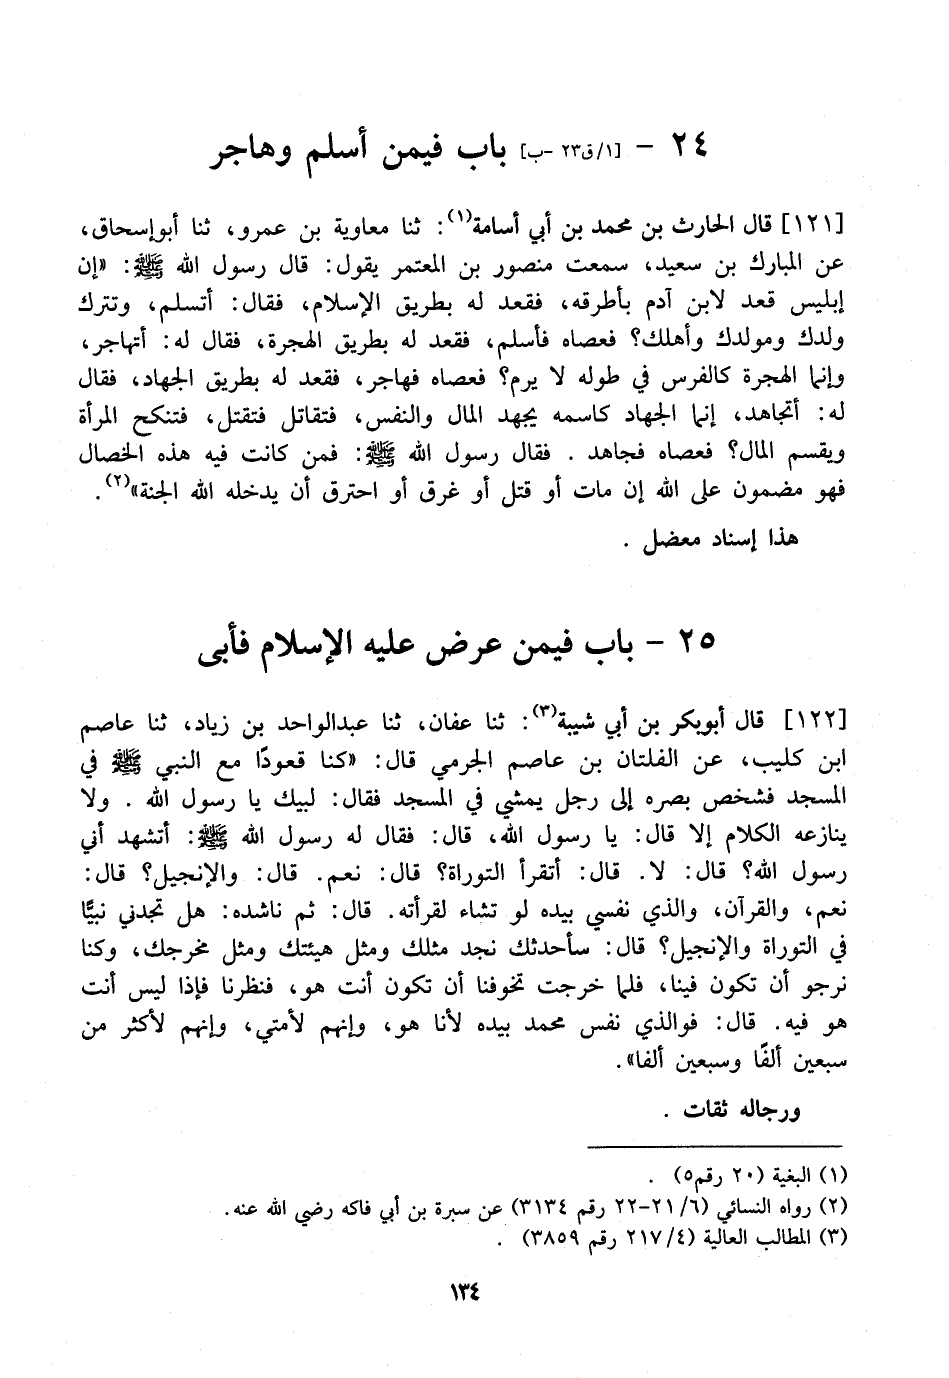 ٢٤ - [١/ق٢٣ -ب] باب فيمن أسلم وهاجر
[١٢١] قال الحارث بن محمد بن أبي أسامة(١): ثنا معاوية بن عمرو، ثنا أبوإسحاق،
عن المبارك بن سعيد، سمعت منصور بن المعتمر يقول: قال رسول الله ﷺ: «إن
إبليس قعد لابن آدم بأطرقه، فقعد له بطريق الإسلام، فقال: أتسلم، وتترك
ولدك ومولدك وأهلك؟ فعصاه فأسلم، فقعد له بطريق الهجرة، فقال له: أتهاجر،
وإنما الهجرة كالفرس في طوله لا يرم؟ فعصاه فهاجر، فقعد له بطريق الجهاد، فقال
له: أتجاهد، إنما الجهاد كاسمه يجهد المال والنفس، فتقاتل فتقتل، فتنكح المرأة
ويقسم المال؟ فعصاه فجاهد . فقال رسول الله ﷺ: فمن كانت فيه هذه الخصال
فهو مضمون على الله إن مات أو قتل أو غرق أو احترق أن يدخله الله الجنة»(٢).
هذا إسناد معضل .
٢٥ - باب فيمن عرض عليه الإسلام فأبى
[١٢٢] قال أبوبكر بن أبي شيبة(٣): ثنا عفان، ثنا عبدالواحد بن زياد، ثنا عاصم
ابن كليب، عن الفلتان بن عاصم الجرمي قال: «كنا قعودًا مع النبي ﷺ في
المسجد فشخص بصره إلى رجل يمشي في المسجد فقال: لبيك يا رسول الله . ولا
ينازعه الكلام إلا قال: يا رسول الله، قال: فقال له رسول الله ﷺ: أتشهد أني
رسول الله؟ قال: لا. قال: أتقرأ التوراة؟ قال: نعم. قال: والإنجيل؟ قال:
نعم، والقرآن، والذي نفسي بيده لو تشاء لقرأته. قال: ثم ناشده: هل تجدني نبيًّا
في التوراة والإنجيل؟ قال: سأحدثك نجد مثلك ومثل هيئتك ومثل مخرجك، وكنا
نرجو أن تكون فينا، فلما خرجت تخوفنا أن تكون أنت هو، فنظرنا فإذا ليس أنت
هو فيه. قال: فوالذي نفس محمد بيده لأنا هو، وإنهم لأمتي، وإنهم لأكثر من
سبعين ألفًا وسبعين ألفا».
ورجاله ثقات .
(١) البغية (٢٠ رقم٥) .
(٢) رواه النسائي (٦/ ٢١-٢٢ رقم ٣١٣٤) عن سبرة بن أبي فاكه رضي الله عنه.
(٣) المطالب العالية (٤/ ٢١٧ رقم ٣٨٥٩) .
١٣٤